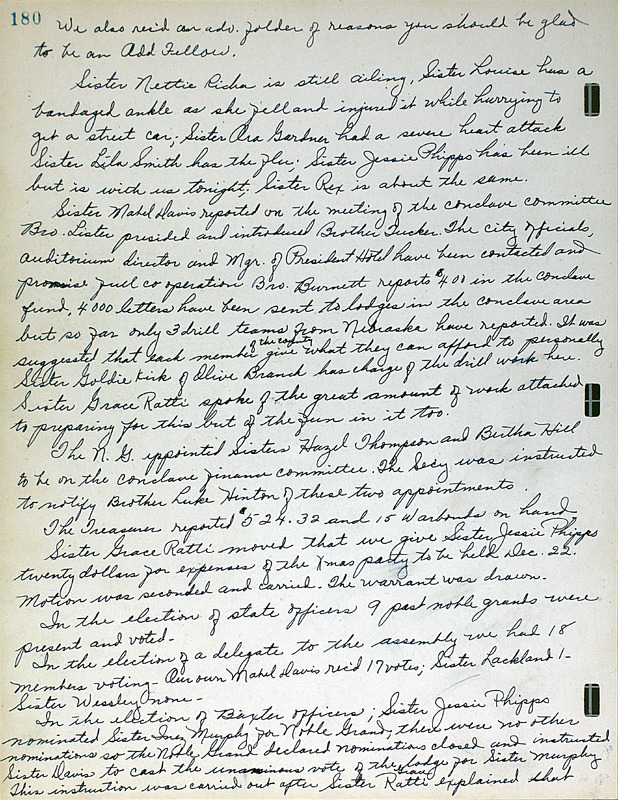 180
We also rec'd an adv. folder of reasons you should be glad
to be an Odd Fellow.
Sister Nettie Richa is still ailing, Sister Louise has a
bandaged ankle as she fell and injured it while hurrying to
get a street car; Sister Ora Gardner had a severe heart attack
Sister Lila Smith has the flu; Sister Jessie Phipps has been ill
but is with us tonight. Sister Rex is about the same.
Sister Mabel Davis reported on the meeting of the conclave committee
Bro. Lister presided and introduced Brother Tucker. The city officials,
auditorium director and Mgr. of President Hotel have been contacted and
promise full co operation Bro. Burnett reports $400 in the conclave
fund, 4000 letters have been sent to lodges in the conclave area
but so far only 3 drill teams from Nebraska have reported. It was
suggested that each member of the county give what they can afford to personally
Sister Goldie Kirk of Olive Branch has charge of the drill work here.
Sister Grace Ratti spoke of the great amount of work attached
to preparing for this but of the fun in it too.
The N. G. appointed Sisters Hazel Thompson and Bertha Hill
to be on the conclave finance committee. The Secy was instructed
to notify Brother Luke Hinton of these two appointments.
The Treasurer reported $524.32 and 15 Warbonds on hand
Sister Grace Ratti moved that we give Sister Jessie Phipps
twenty dollars for expenses of the Xmas party to be held Dec. 22.
Motion was seconded and carried. The warrant was drawn.
In the election of state officers 9 past noble grands were
present and voted-
In the election of a delegate to the assembly we had 18
members voting- Our own Mabel Davis rec'd 17 votes; Sister Lackland 1-
Sister Wessley none-
In the election of Baxter officers; Sister Jessie Phipps
nominated Sister Inez Murphy for Noble Grand, there were no other
nominations so the Noble Grand declared nominations closed and instructed
Sister Davis to cast the unanimous vote of the lodge for Sister Murphy
This instruction was carried out after Sister Grace Ratti explained that